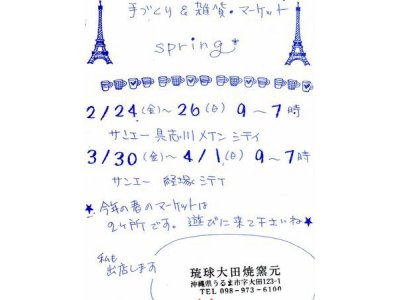 手づくり & 雑貨・マーケット
spring
2/24(金)～26(日) 9～7時
サンエー 具志川メイン シティ
3/30(金)～4/1(日) 9～7時
サンエー 経塚シティ
★今年の春のマーケットは
2ヶ所です。遊びに来て下さいね★
私も
出店します
琉球大田焼窯元
沖縄県うるま市字大田123-1
TEL 098-973-6100